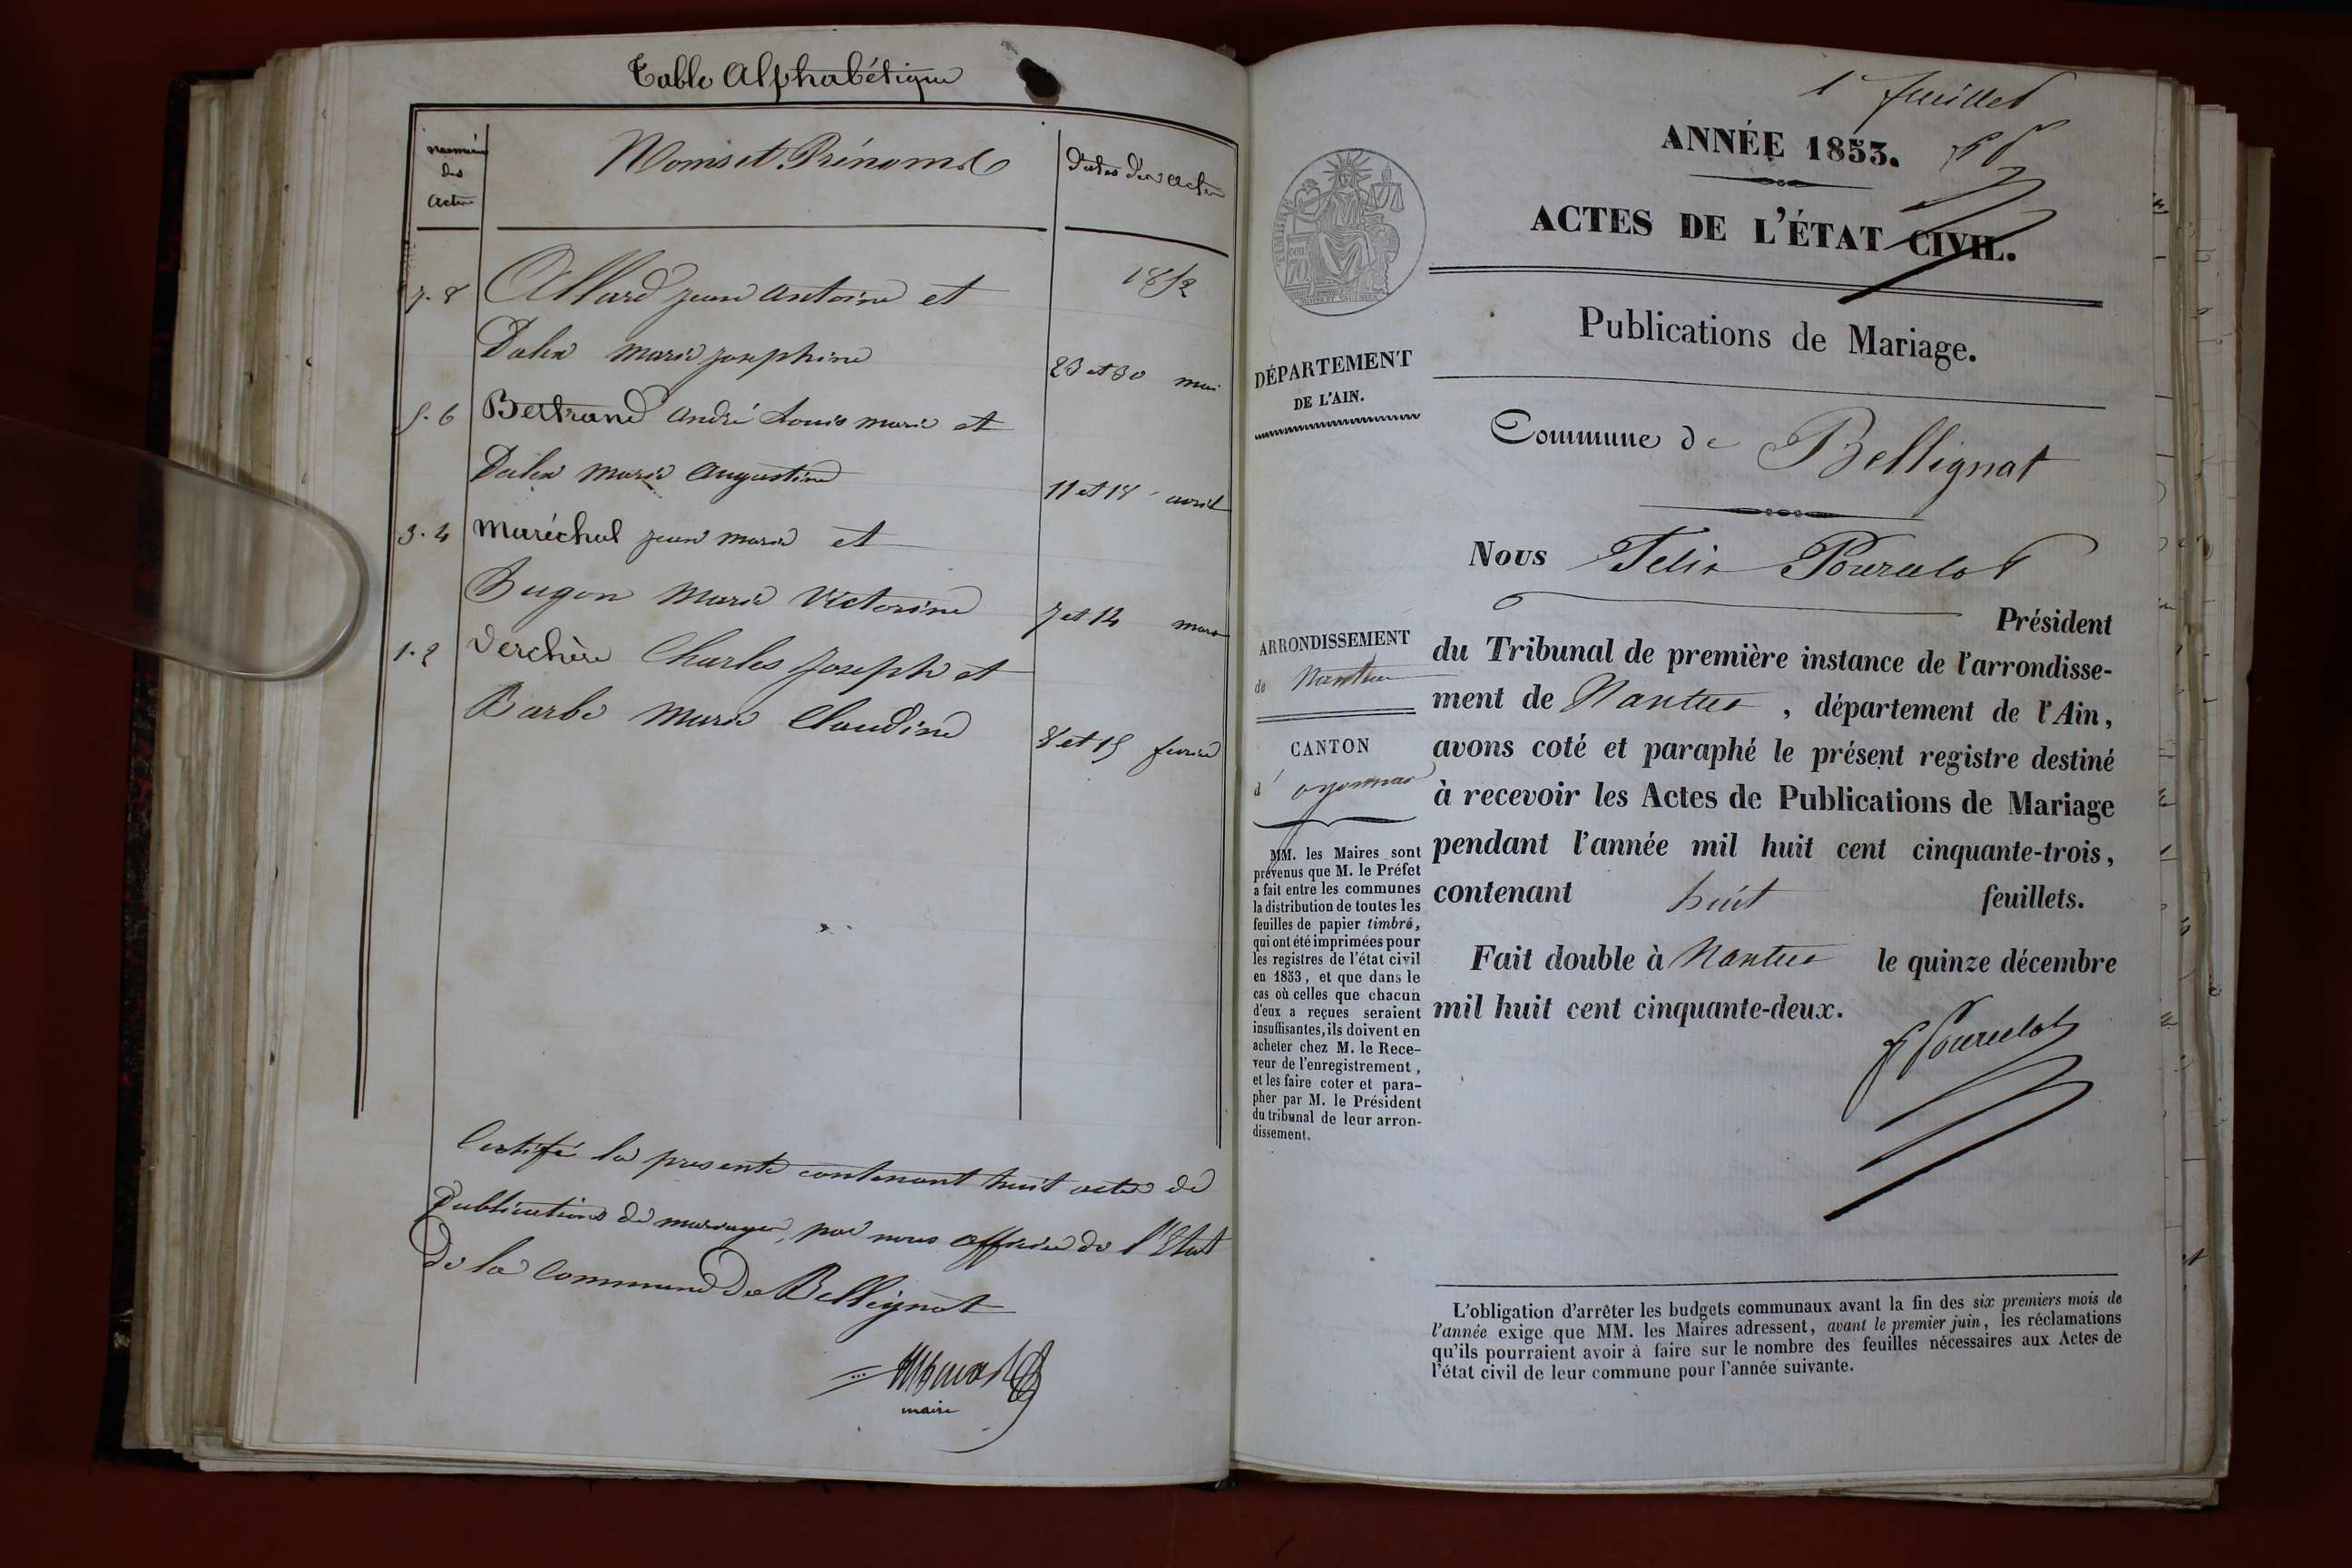 Table Alphabétique
Numéros
des
Actes
Noms et Prénoms
Dates des Actes
1852
7. 8 Allard jean antoine et
Dalex marie josephine 23 et 30 mai
5. 6 Bertrand andré Louis marie et
Dalex marie augustine 11 et 18 avril
3. 4 Maréchal jean marie et
Bugon marie victorine 7 et 14 mars
1. 2 Verchère Charles joseph et
Barbe marie Claudine 8 et 15 fevrier
Certifié la presente contenant huit actes de
Publications de mariages, par nous officier de l'Etat
De la Commune De Bellignat
maire
1er feuillet
ANNÉE 1853.
ACTES DE L'ÉTAT CIVIL.
Publications de Mariage.
TIMBRE
70
DÉPARTEMENT
DE L'AIN.
Commune de Bellignat
Nous Felix Pourcelot
Président
du Tribunal de première instance de l'arrondisse-
ment de Nantua, département de l'Ain,
avons coté et paraphé le présent registre destiné
à recevoir les Actes de Publications de Mariage
pendant l'année mil huit cent cinquante-trois,
contenant huit feuillets.
Fait double à Nantua le quinze décembre
mil huit cent cinquante-deux.
F Pourcelot
ARRONDISSEMENT
de Nantua
CANTON
d'oyonnax
MM. les Maires sont
prévenus que M. le Préfet
a fait entre les communes
la distribution de toutes les
feuilles de papier timbré,
qui ont été imprimées pour
les registres de l'état civil
en 1853, et que dans le
cas où celles que chacun
d'eux a reçues seraient
insuffisantes, ils doivent en
acheter chez M. le Rece-
veur de l'enregistrement,
et les faire coter et para-
pher par M. le Président
du tribunal de leur arron-
dissement.
L'obligation d'arrêter les budgets communaux avant la fin des six premiers mois de
l'année exige que MM. les Maires adressent, avant le premier juin, les réclamations
qu'ils pourraient avoir à faire sur le nombre des feuilles nécessaires aux Actes de
l'état civil de leur commune pour l'année suivante.